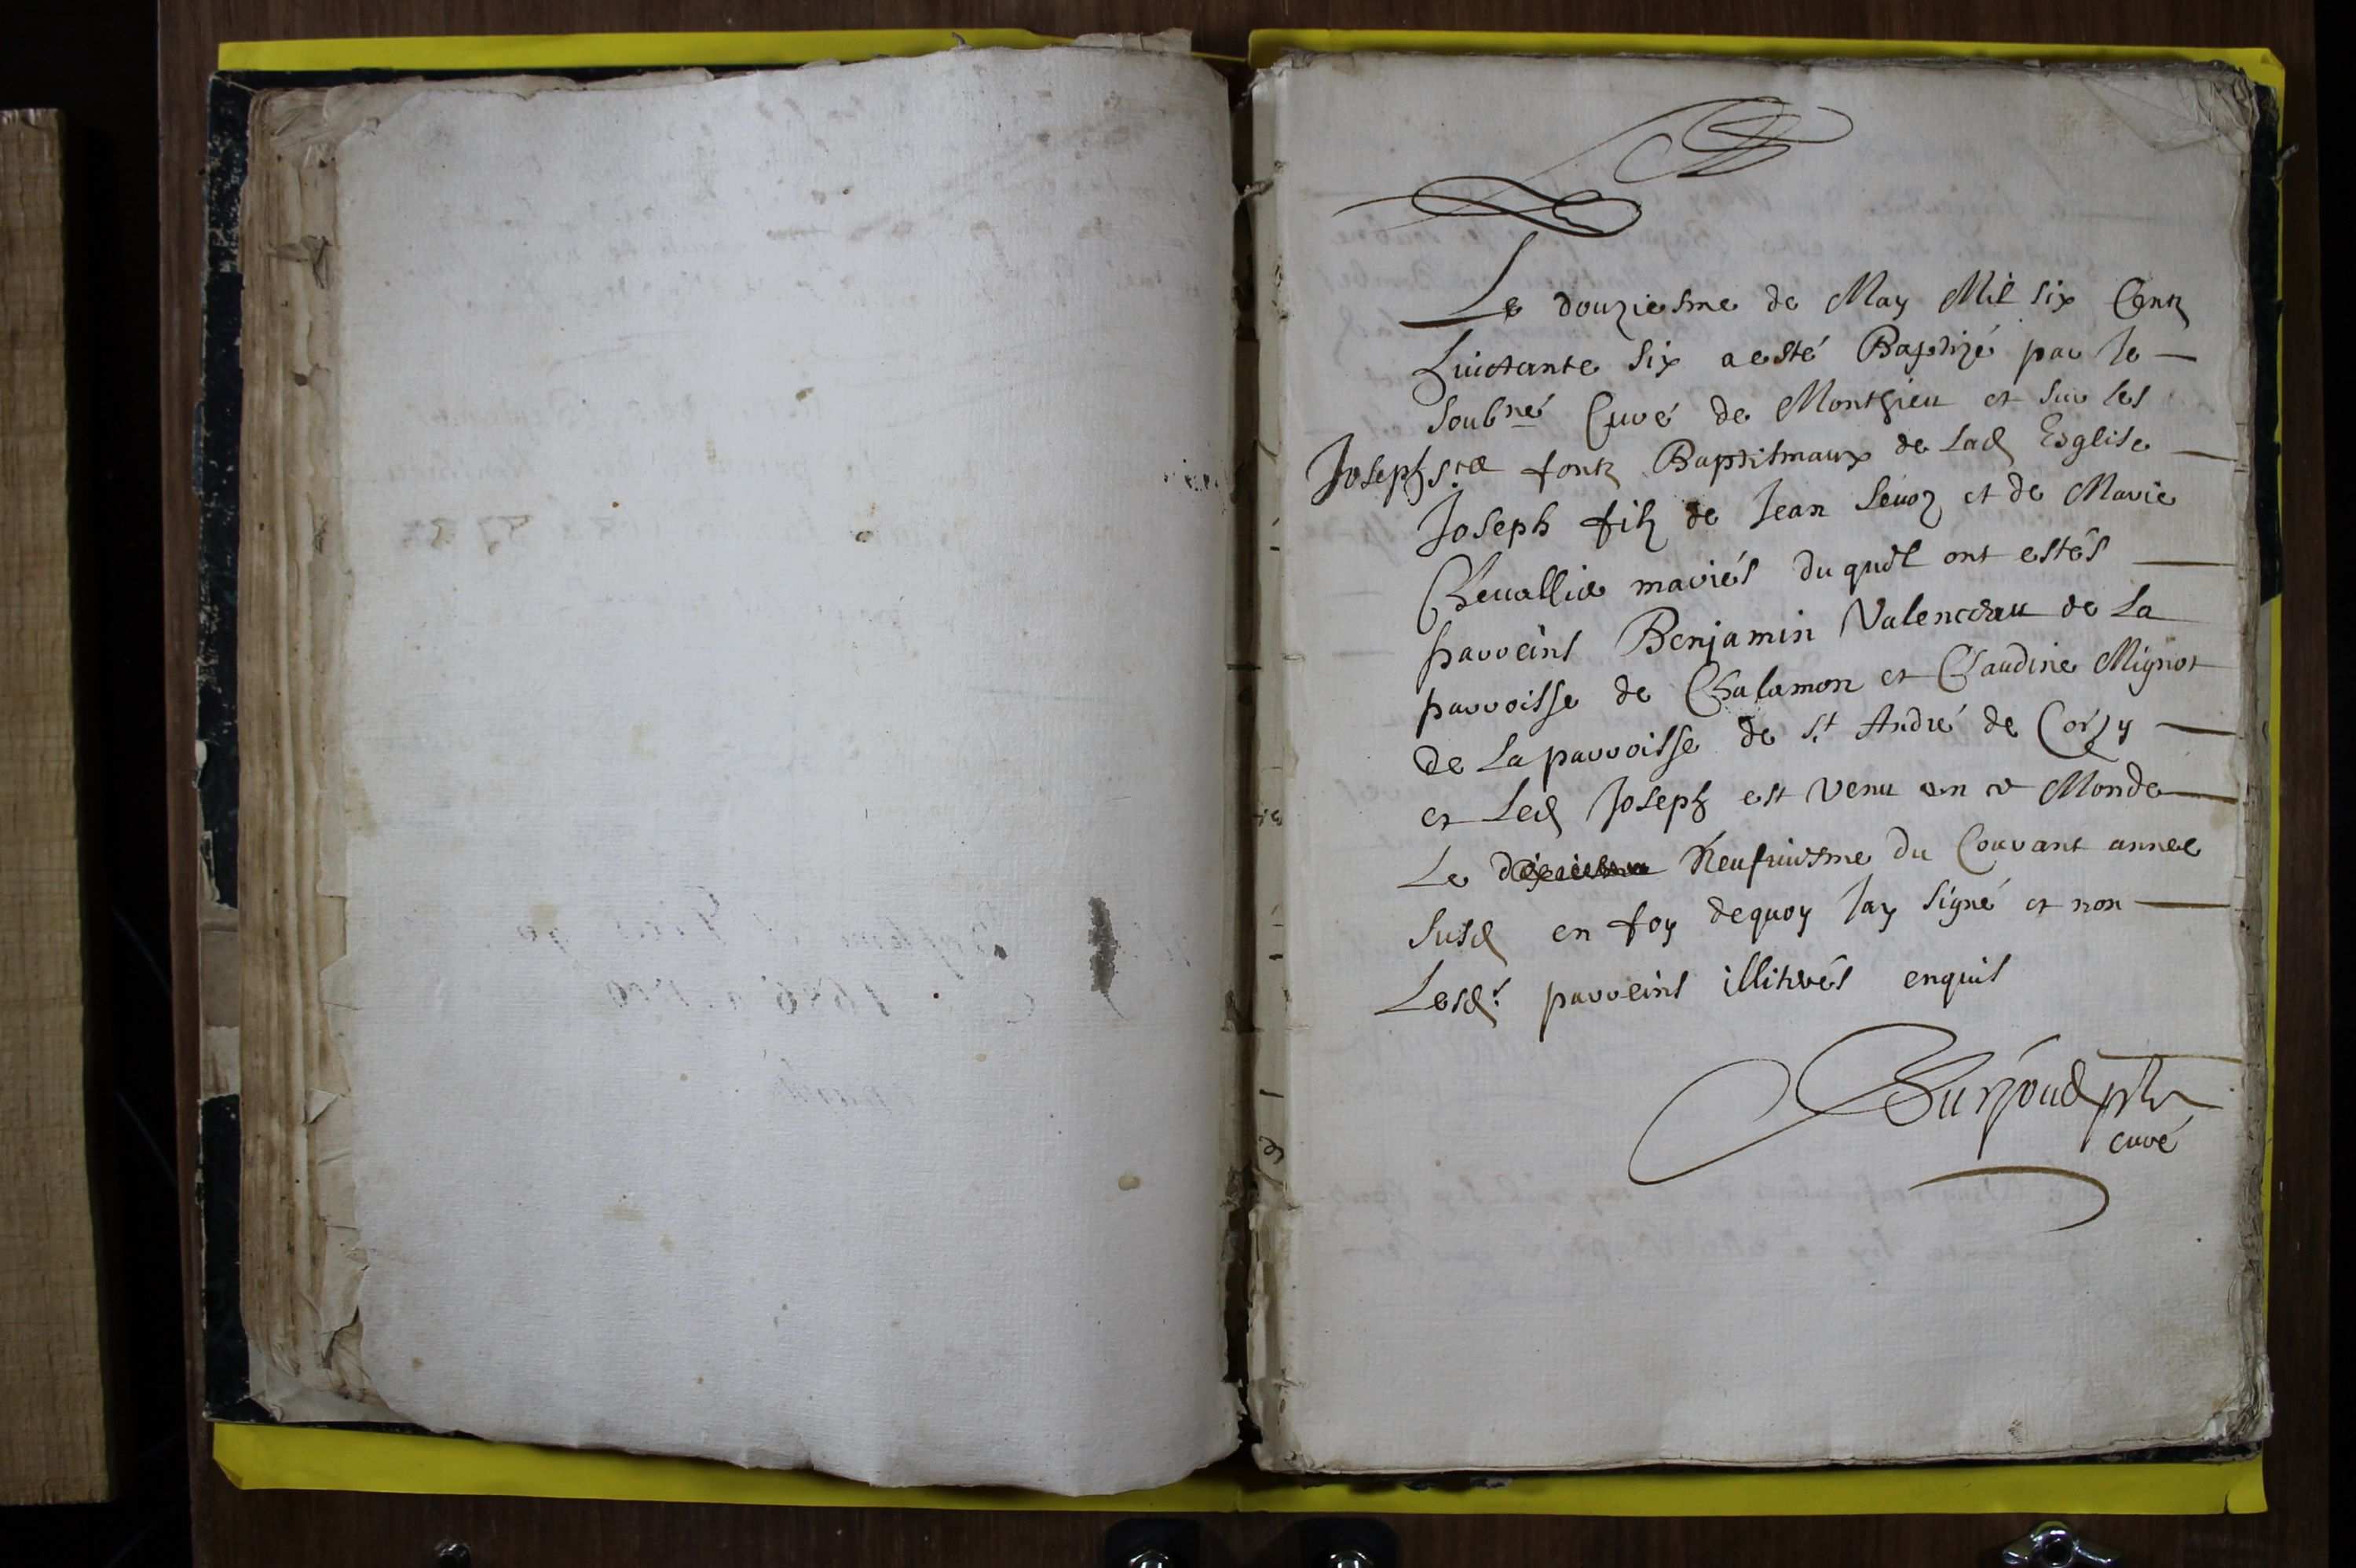 Le douziesme de May Mil six Centz
huictante six a esté Baptizé par Je
Soubné Curé de Monthieu et sur les
Joseph
Stz fontz Baptismaux de Lad Esglise
Joseph filz de Jean et de Marie
Chevallier mariés duquel ont estés
parreins Benjamin de La
parroisse de Chalamon et Claudine Mignot
de La parroisse de St André de Corzy
et Led Joseph est venu en ce Monde
Le Neufviesme du Courant annee
susd en foy dequoy Jay signé et non
Lesds parreins illiterés enquis
ptre
curé